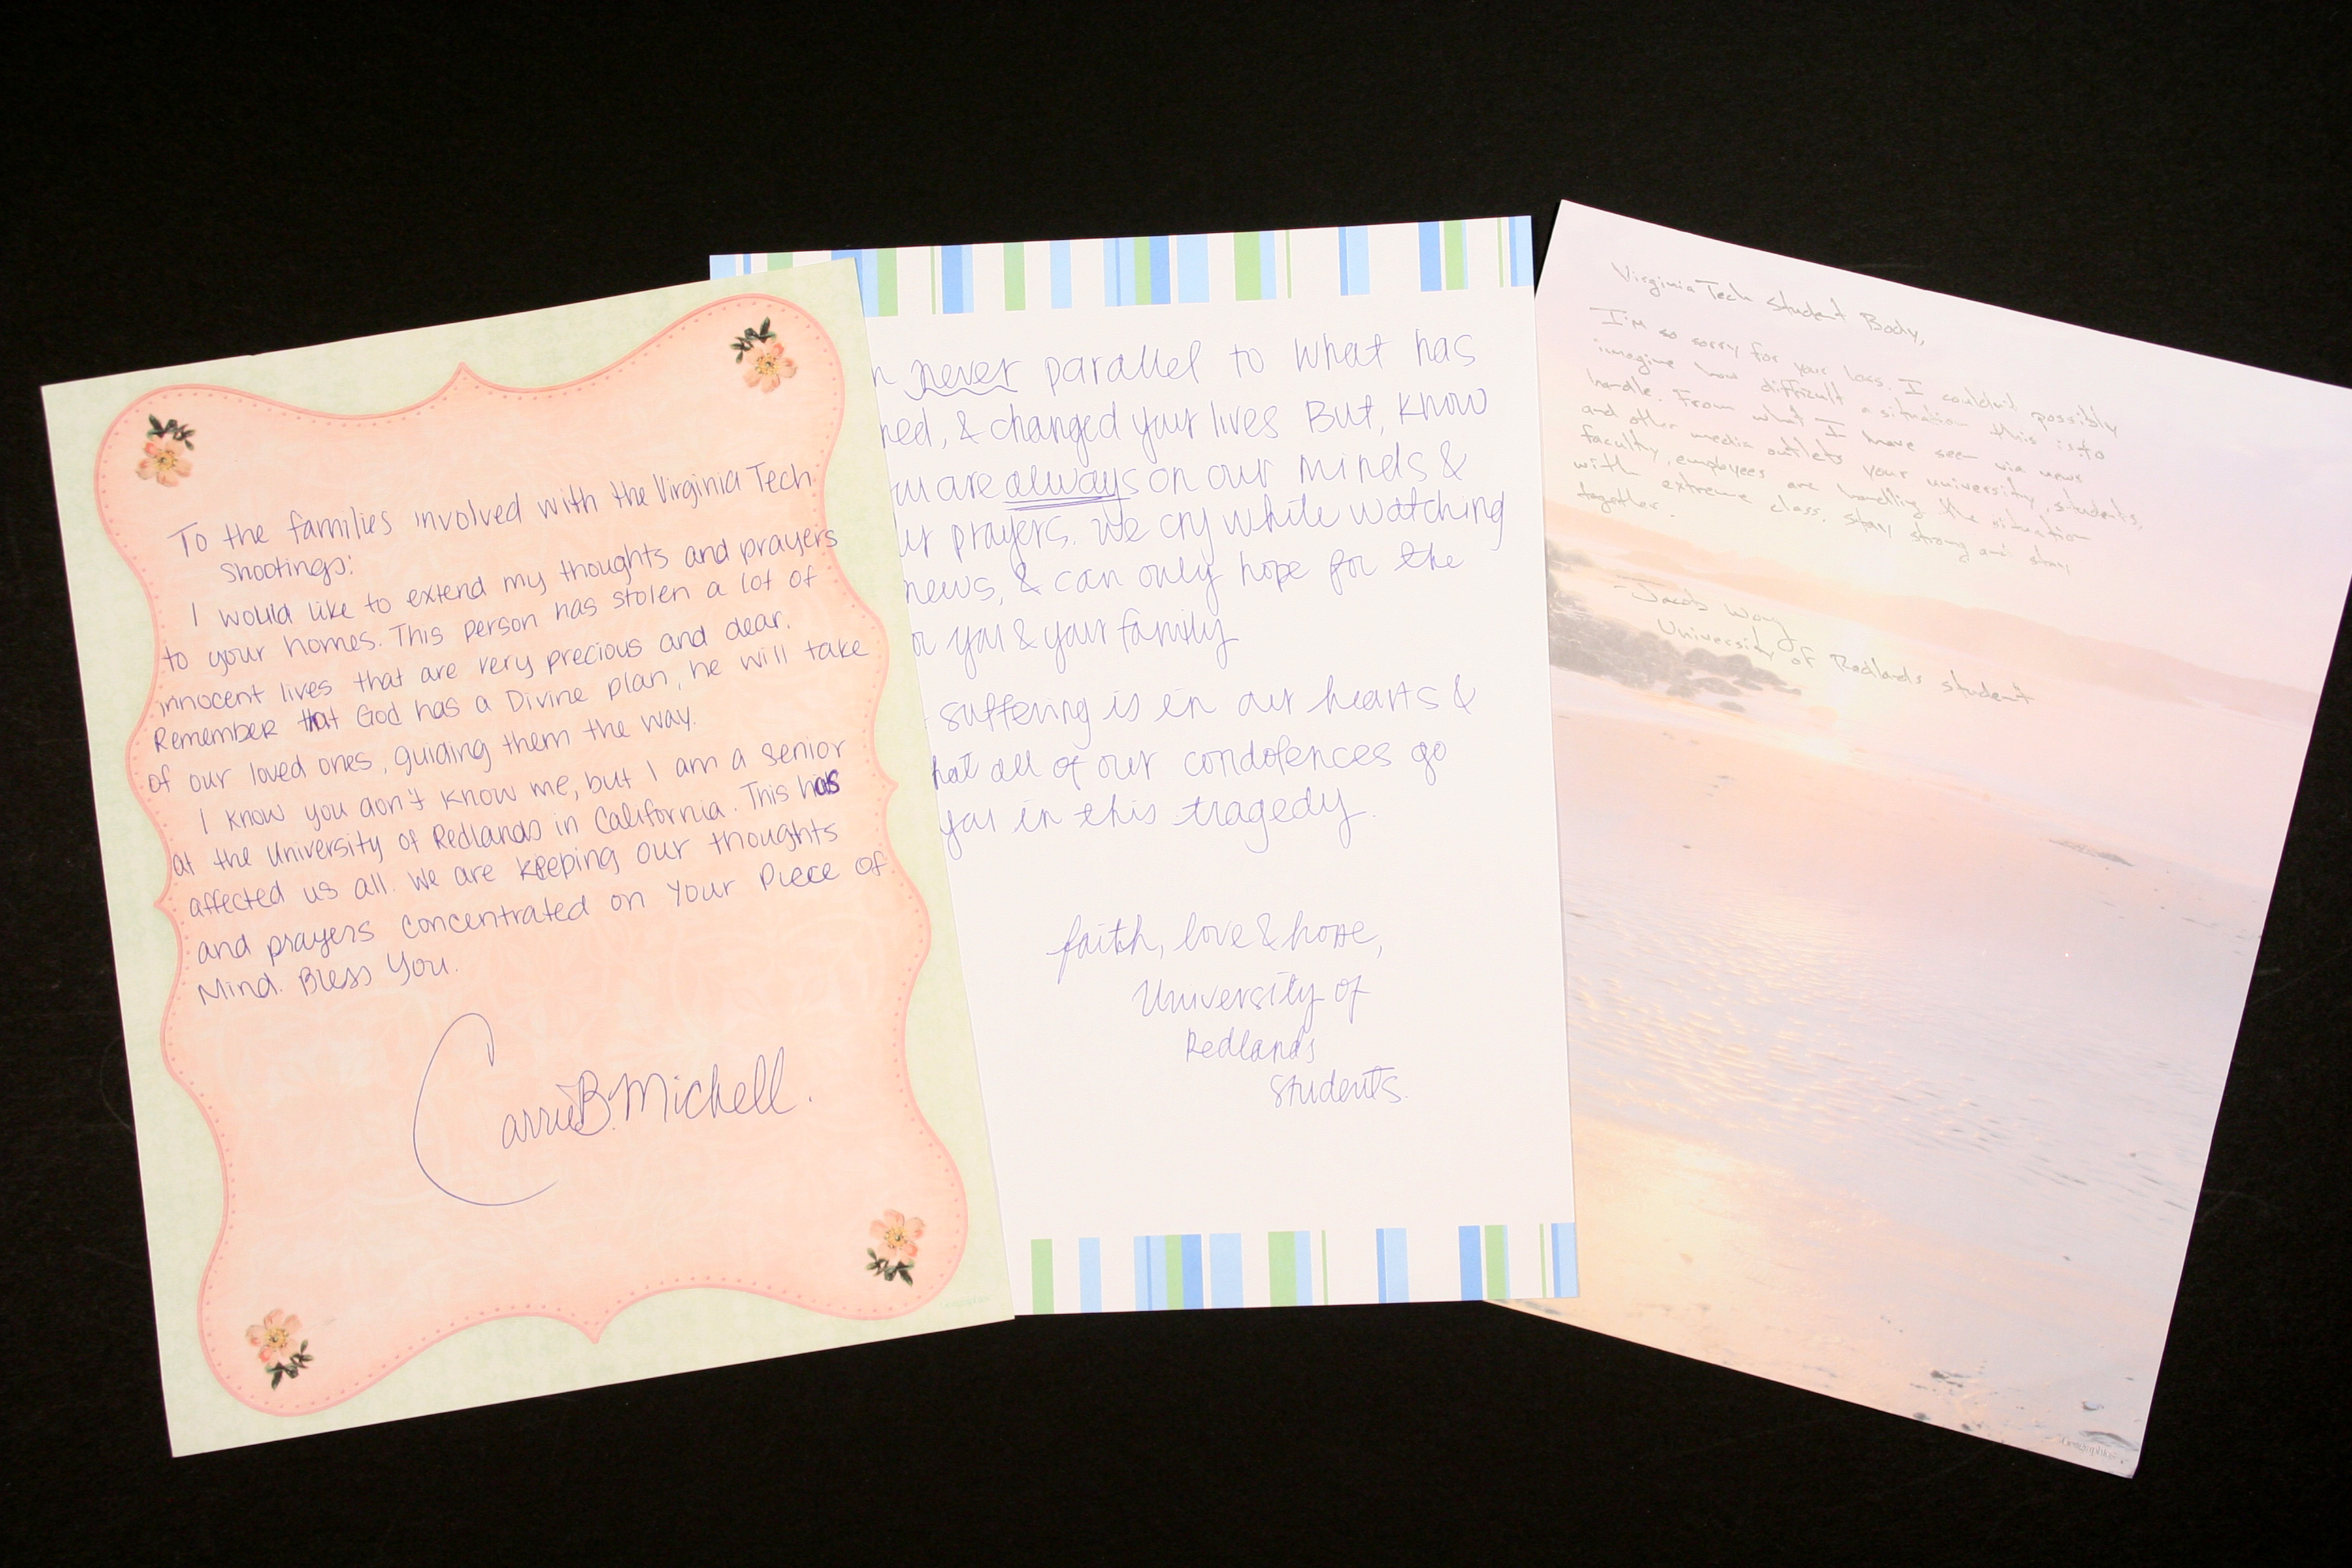 To the families involved with the Virginia Tech
Shootings:
I would like to extend my thoughts and prayers
to your homes. This person has stolen a lot of
innocent lives that are very precious and dear.
Remember that God has a Divine plan, he will take
of our loved ones, guiding them the way.
I know you don't know me, but I am a senior
at the University of Redlands in California. This has
affected us all. We are keeping our thoughts
and prayers concentrated on Your Piece of
Mind. Bless You.
Carrie B. Michell.
never parallel to what has
ed, & changed your lives But, know
u are always on our minds &
ur prayers. We cry while watching
news, & can only hope for the
you & your family
suffering is in our hearts &
hat all of our condolences go
you in this tragedy.
faith, love & hope,
University of
Redlands
Students.
Virginia Tech Student Body,
I'm so sorry for your loss. I couldn't possibly
imagine how difficult a situation this is to
handle. From what I have seen via news
and other media outlets your university, students,
faculty, employees are handling the situation
with extreme class. Stay strong and stay
together.
-Jacob Wong
University of Redlands student
Geographics
Geographics